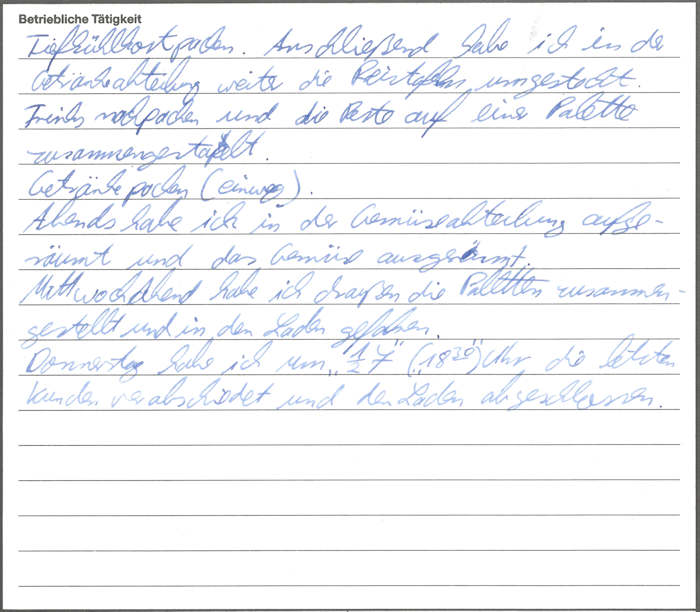 Betriebliche Tätigkeit
Tiefkühlkost packen. Anschließend habe ich in der
Getränkeabteilung weiter die umgestockt.
nachpacken und die Reste auf einer Palette
zusammengestapelt.
Getränke packen (einweg).
Abends habe ich in der Gemüseabteilung aufge-
räumt und das Gemüse ausgeräumt.
Mittwochabend habe ich draußen die Paletten zusammen-
gestellt und in den Laden gefahren.
Donnerstag habe ich um „1/2 7" („18 30") Uhr die letzten
Kunden verabschiedet und den Laden abgeschlossen.